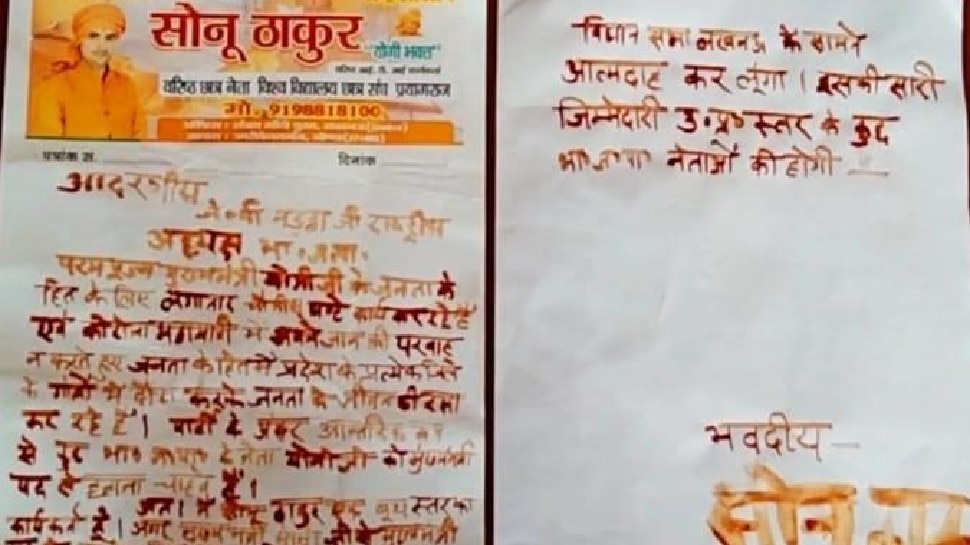 सोनू ठाकुर
"योगी भक्त"
वरिष्ठ छात्र नेता विश्व विद्यालय छात्र संघ प्रयागराज
मो. 9198818100
पत्रांक स.
दिनांक
आदरणीय
जे०पी नड्डा जी राष्ट्रीय
अध्यक्ष भा.ज.पा.
परमपूज्य मुख्यमंत्री योगीजी के जनता के
हित के लिए लगातार चौबीस घण्टे कार्य कर रहे हैं
एवं कोरोना महामारी में अपने जान की परवाह
न करते हुए जनता के हित में प्रदेश के प्रत्येक जिले
के गांवों में दौरा करके जनता के जीवन की रक्षा
कर रहे हैं। पार्टी के अन्दर आन्तरिक रूप
से कुछ भा० ज०पा० के नेता योगीजी को मुख्यमंत्री
पद से हटाना चाहते हैं।
अतः मैं सोनू ठाकुर एक बूथ स्तर का
कार्यकर्ता हूँ। अगर
विधान सभा लखनऊ के सामने
आत्मदाह कर लूंगा। इसकी सारी
जिम्मेदारी उ.प्र० स्तर के कुछ
भा०ज०पा० नेताओं की होगी
भवदीय